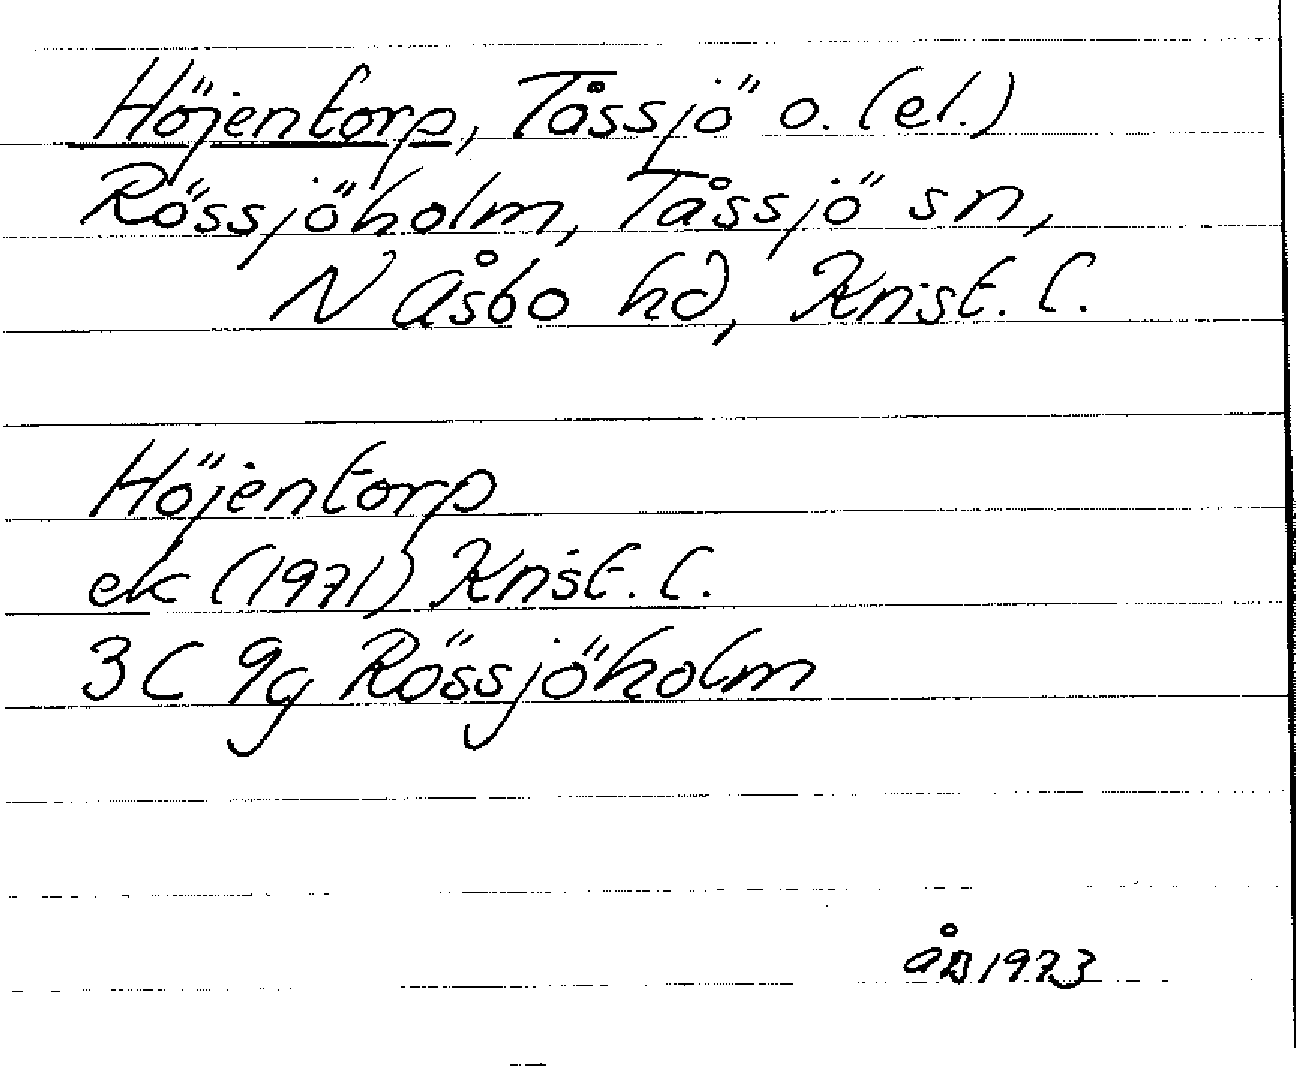 Höjentorp, Tåssjö o. (el.)
Rössjöholm, Tåssjö sn,
N Åsbo hd, Krist. l.
Höjentorp
ek (1971) Krist. l.
3C 9g Rössjöholm
ÅB 1973